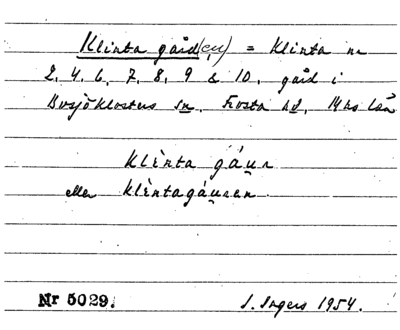 Klinta gård(en) = Klinta nr
2, 4, 6, 7, 8, 9 & 10, gård i
Bosjöklosters sn. Frosta hd, M-hs län
Klìnta gáu̯n
eller klìntagáu̯nen
Nr 5029.
I. Ingers 1954.